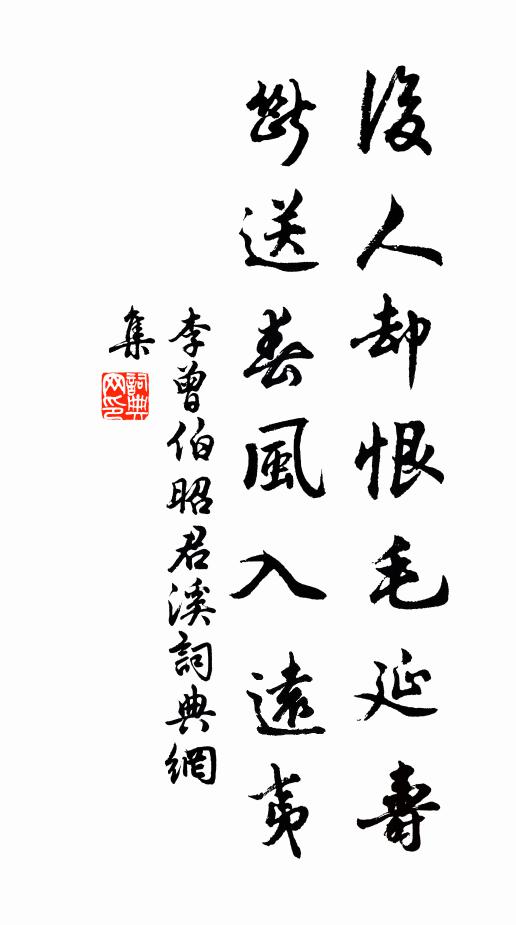 後人却恨毛延壽
斷送春風入遠夷
李曾伯昭君溪詞典網
集
詞典
网印